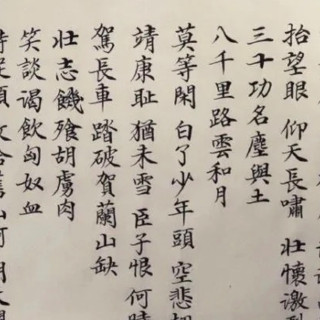 抬望眼 仰天長嘯 壯懷激
三十功名塵與土
八千里路雲和月
莫等閑 白了少年頭 空悲
靖康耻 猶未雪 臣子恨 何時
駕長車 踏破賀蘭山缺
壯志饑飱胡虜肉
笑談渴飲匈奴血